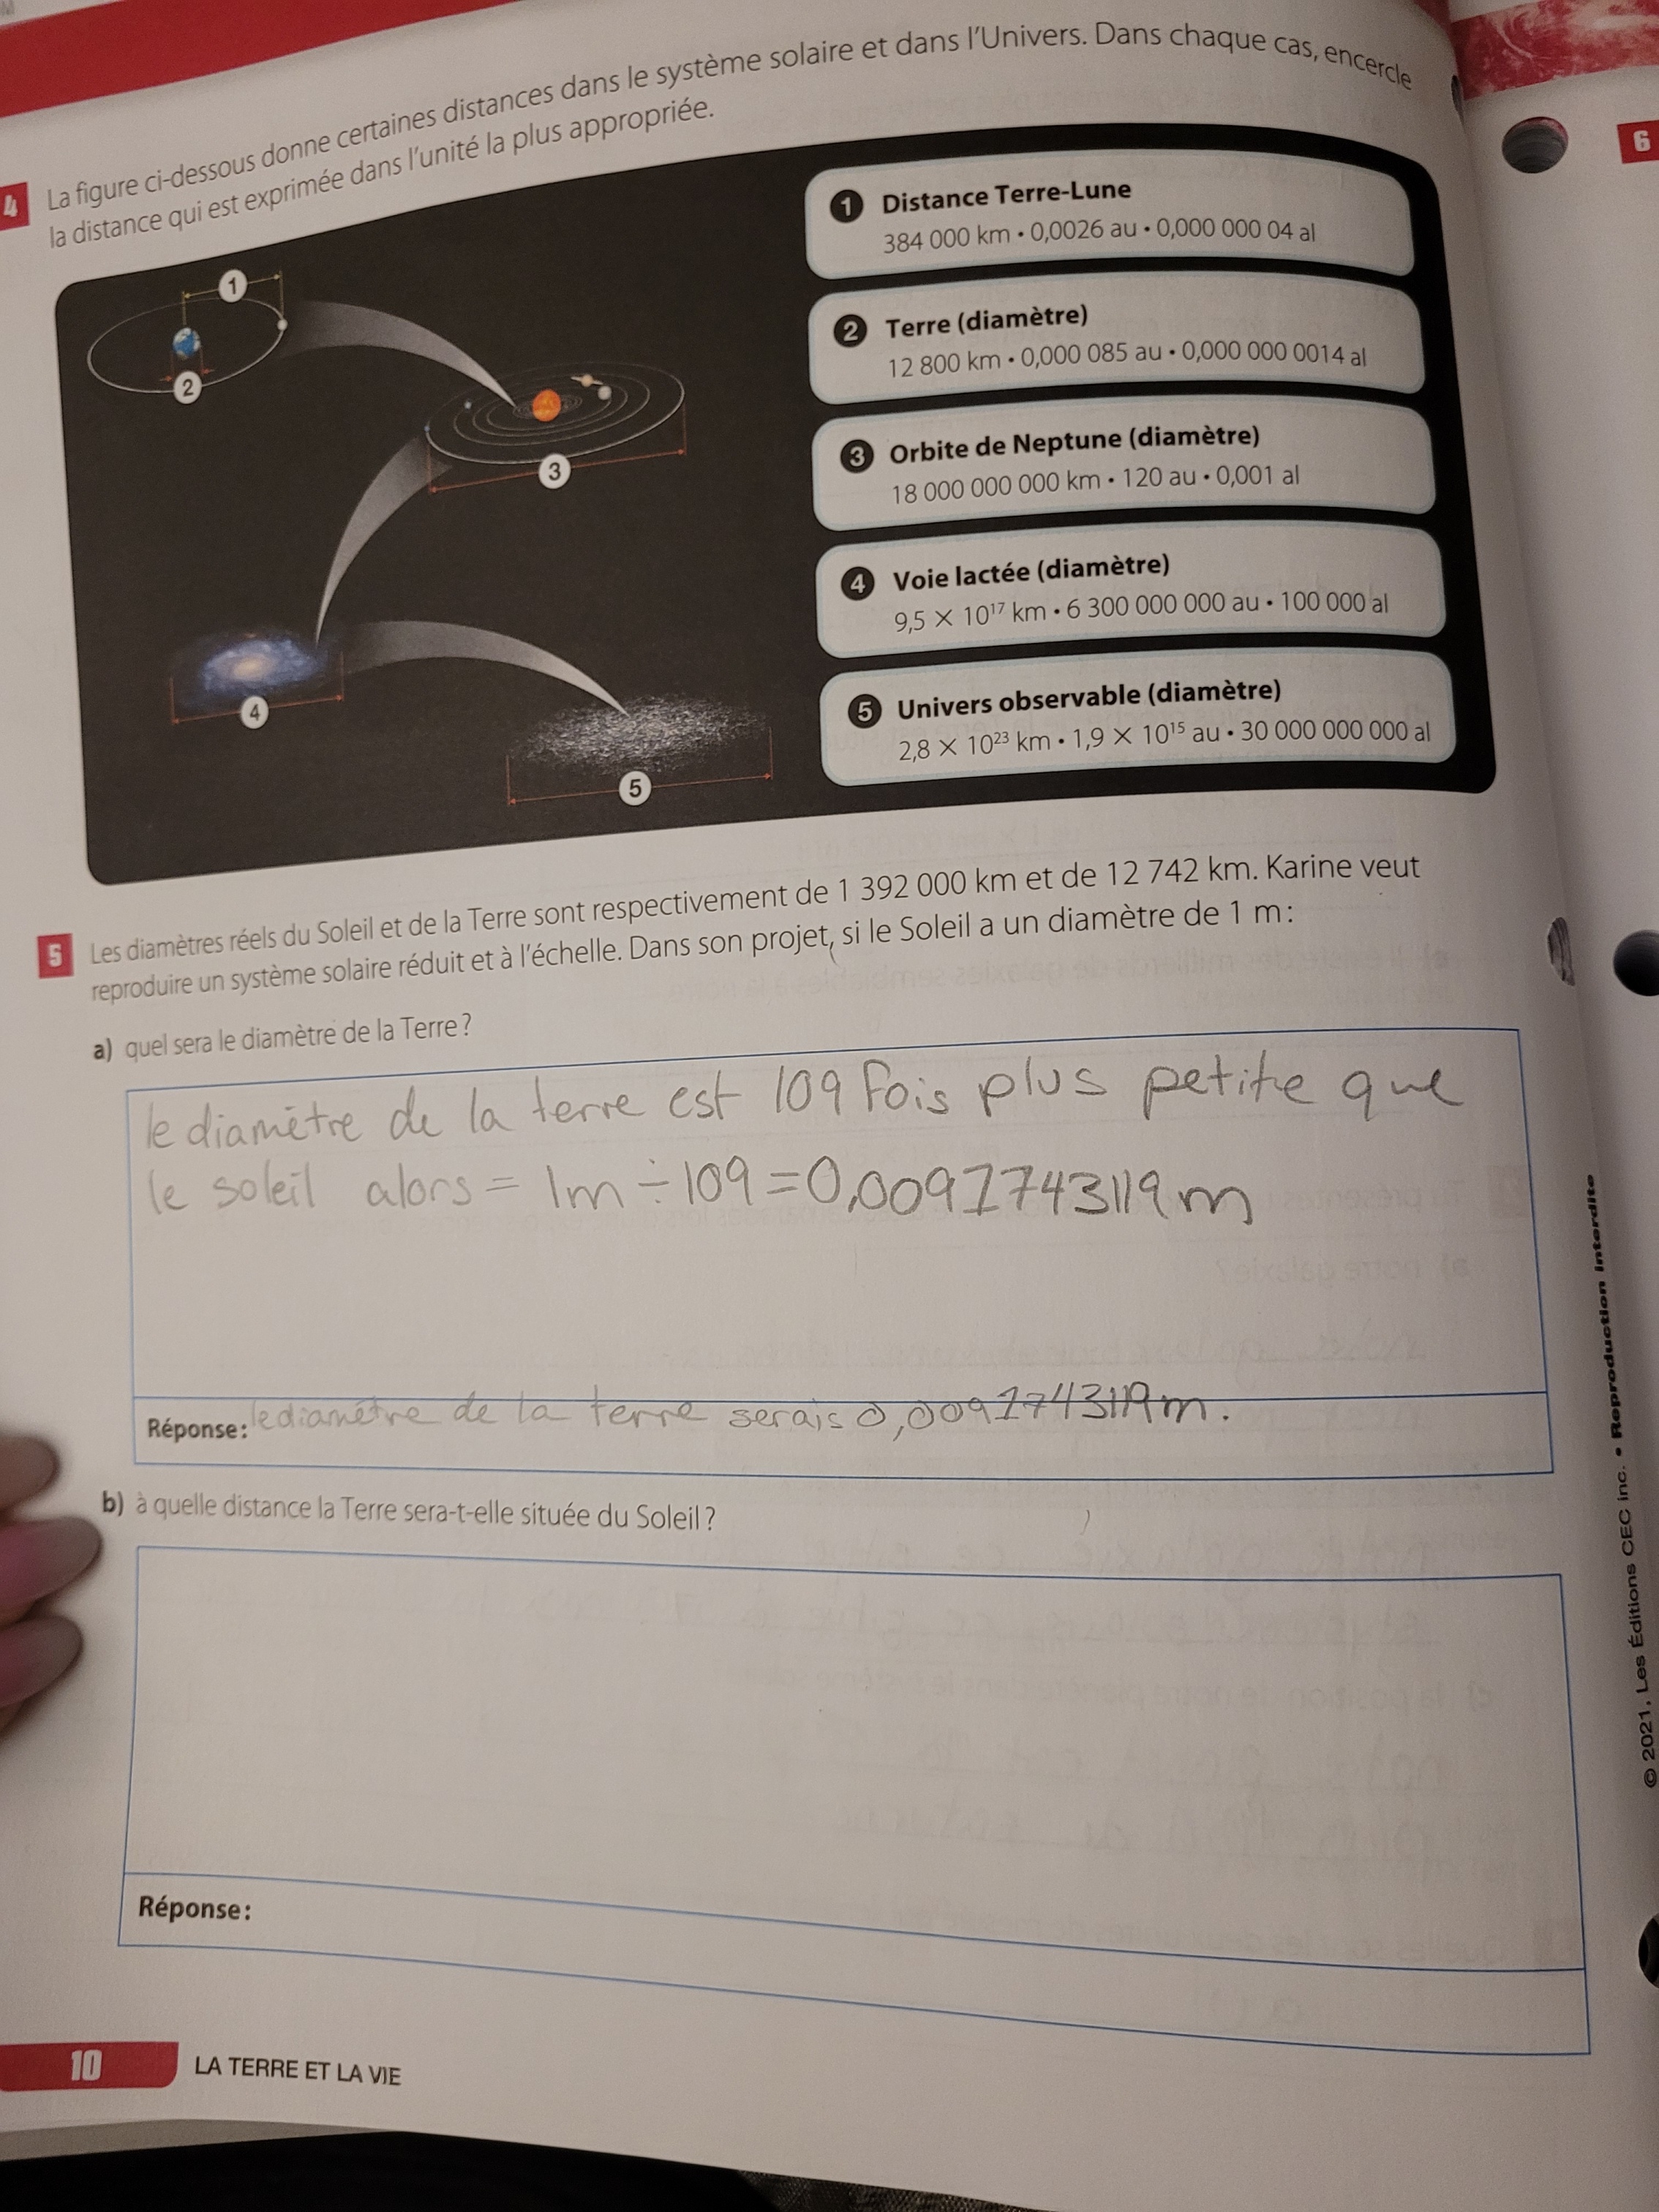 4 La figure ci-dessous donne certaines distances dans le système solaire et dans l'Univers. Dans chaque cas, encercle
la distance qui est exprimée dans l'unité la plus appropriée.
1
2
3
4
5
1 Distance Terre-Lune
384 000 km • 0,0026 au • 0,000 000 04 al
2 Terre (diamètre)
12 800 km • 0,000 085 au • 0,000 000 0014 al
3 Orbite de Neptune (diamètre)
18 000 000 000 km • 120 au • 0,001 al
4 Voie lactée (diamètre)
9,5 × 10¹⁷ km • 6 300 000 000 au • 100 000 al
5 Univers observable (diamètre)
2,8 × 10²³ km • 1,9 × 10¹⁵ au • 30 000 000 000 al
6
5 Les diamètres réels du Soleil et de la Terre sont respectivement de 1 392 000 km et de 12 742 km. Karine veut
reproduire un système solaire réduit et à l'échelle. Dans son projet, si le Soleil a un diamètre de 1 m :
a) quel sera le diamètre de la Terre ?
le diamètre de la terre est 109 fois plus petite que
le soleil alors = 1m ÷ 109 = 0,0091743119 m
Réponse : le diamètre de la terre serais 0,0091743119 m.
b) à quelle distance la Terre sera-t-elle située du Soleil ?
Réponse :
10 LA TERRE ET LA VIE
© 2021, Les Éditions CEC inc. • Reproduction interdite